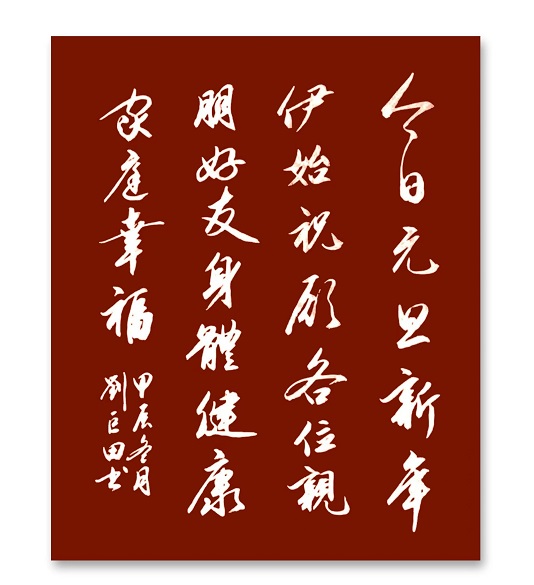 今日元旦新年
伊始祝願各位親
朋好友身體健康
家庭幸福
甲辰冬月
劉巨田书